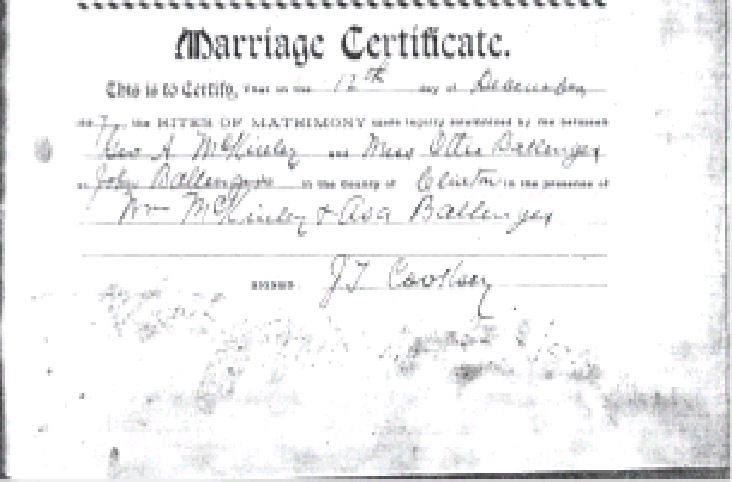 Marriage Certificate.
This is to Certify, That on the 12th day of December
the RITES OF MATRIMONY were legally solemnized by me between
Geo A McKinley and Miss Ottie Ballenger
at John Ballengers in the County of Clinton in the presence of
Wm McKinley & Asa Ballenger
SIGNED J T Cooksey